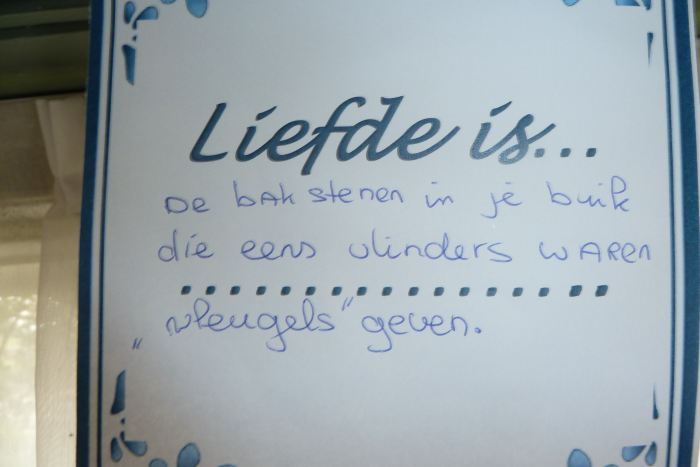 Liefde is...
De bakstenen in je buik
die eens vlinders waren
„vleugels” geven.